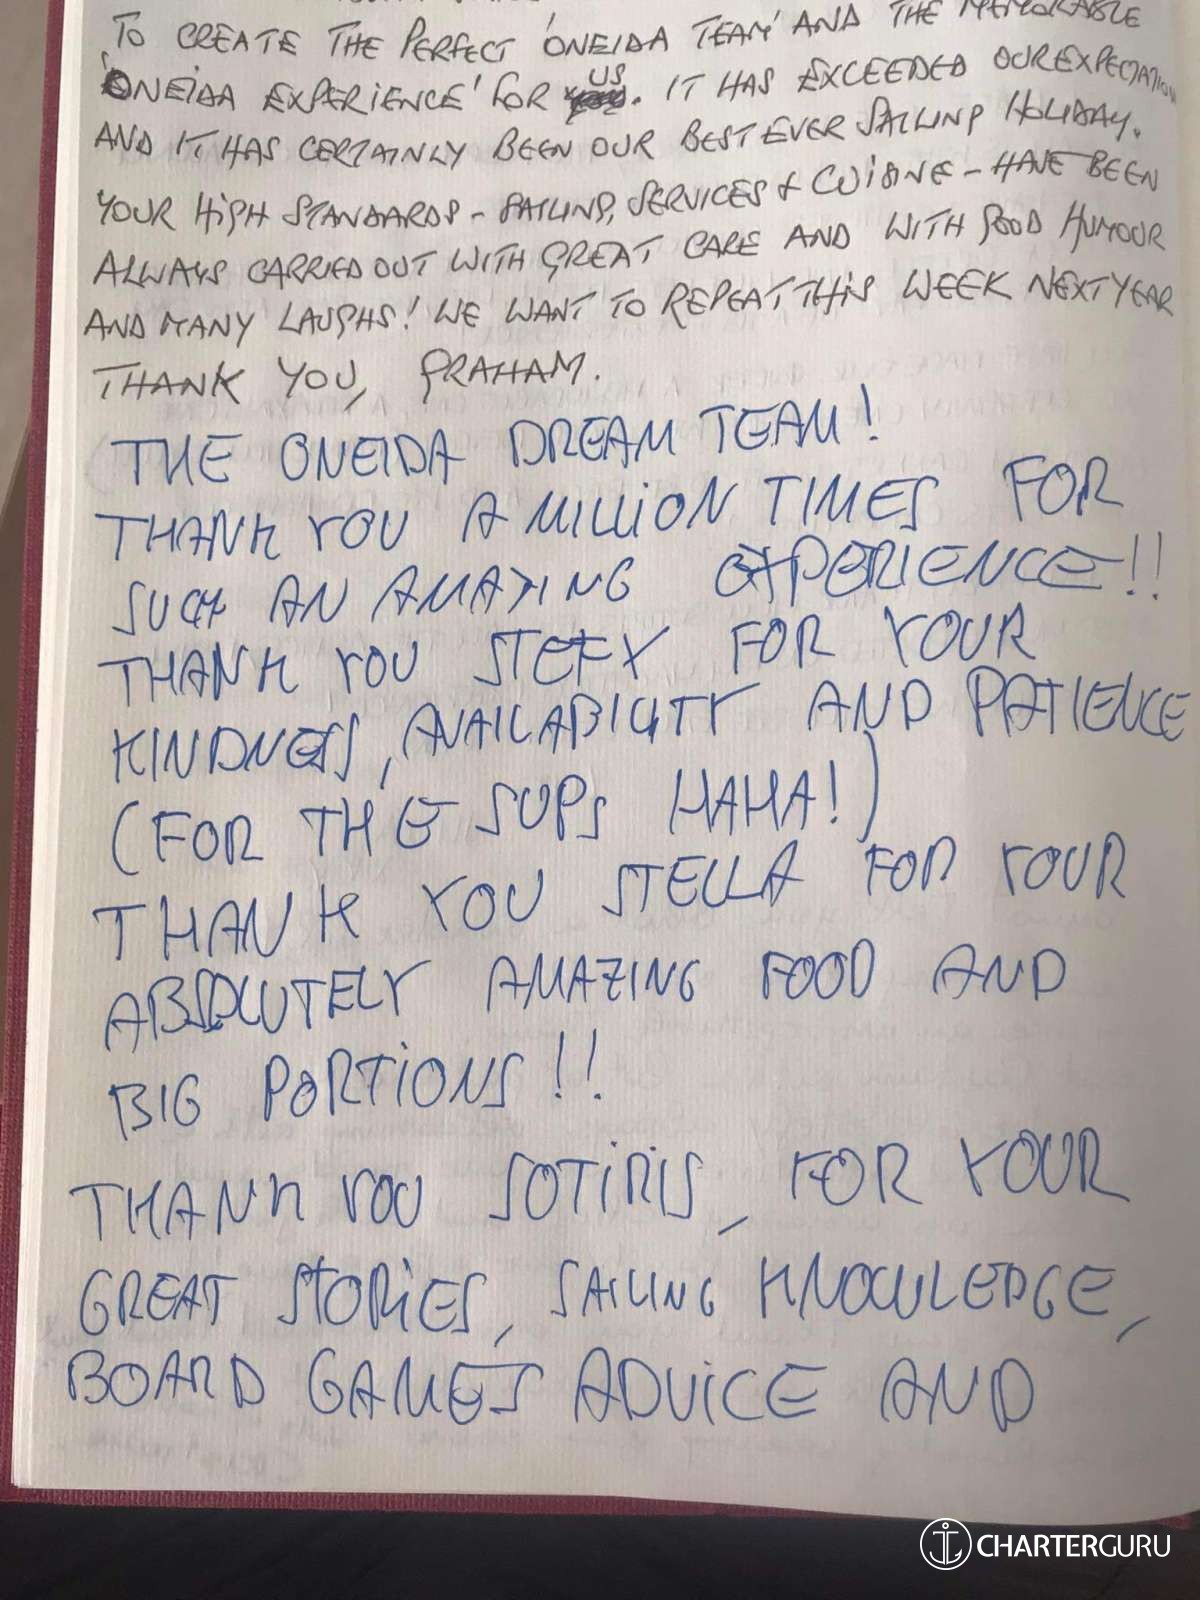 TO CREATE THE PERFECT 'ONEIDA TEAM' AND THE MEMORABLE
'ONEIDA EXPERIENCE' FOR US. IT HAS EXCEEDED OUR EXPECTATION
AND IT HAS CERTAINLY BEEN OUR BEST EVER SAILING HOLIDAY.
YOUR HIGH STANDARDS - SAILING, SERVICES & CUISINE - HAVE BEEN
ALWAYS CARRIED OUT WITH GREAT CARE AND WITH GOOD HUMOUR
AND MANY LAUGHS! WE WANT TO REPEAT THIS WEEK NEXT YEAR
THANK YOU, GRAHAM.
THE ONEIDA DREAM TEAM!
THANK YOU A MILLION TIMES FOR
SUCH AN AMAZING EXPERIENCE!!
THANK YOU STEFY FOR YOUR
KINDNESS, AVAILABILITY AND PATIENCE
(FOR THE SUPs HAHA!)
THANK YOU STELLA FOR YOUR
ABSOLUTELY AMAZING FOOD AND
BIG PORTIONS!!
THANK YOU SOTIRIS, FOR YOUR
GREAT STORIES, SAILING KNOWLEDGE,
BOARD GAMES ADVICE AND
CHARTERGURU